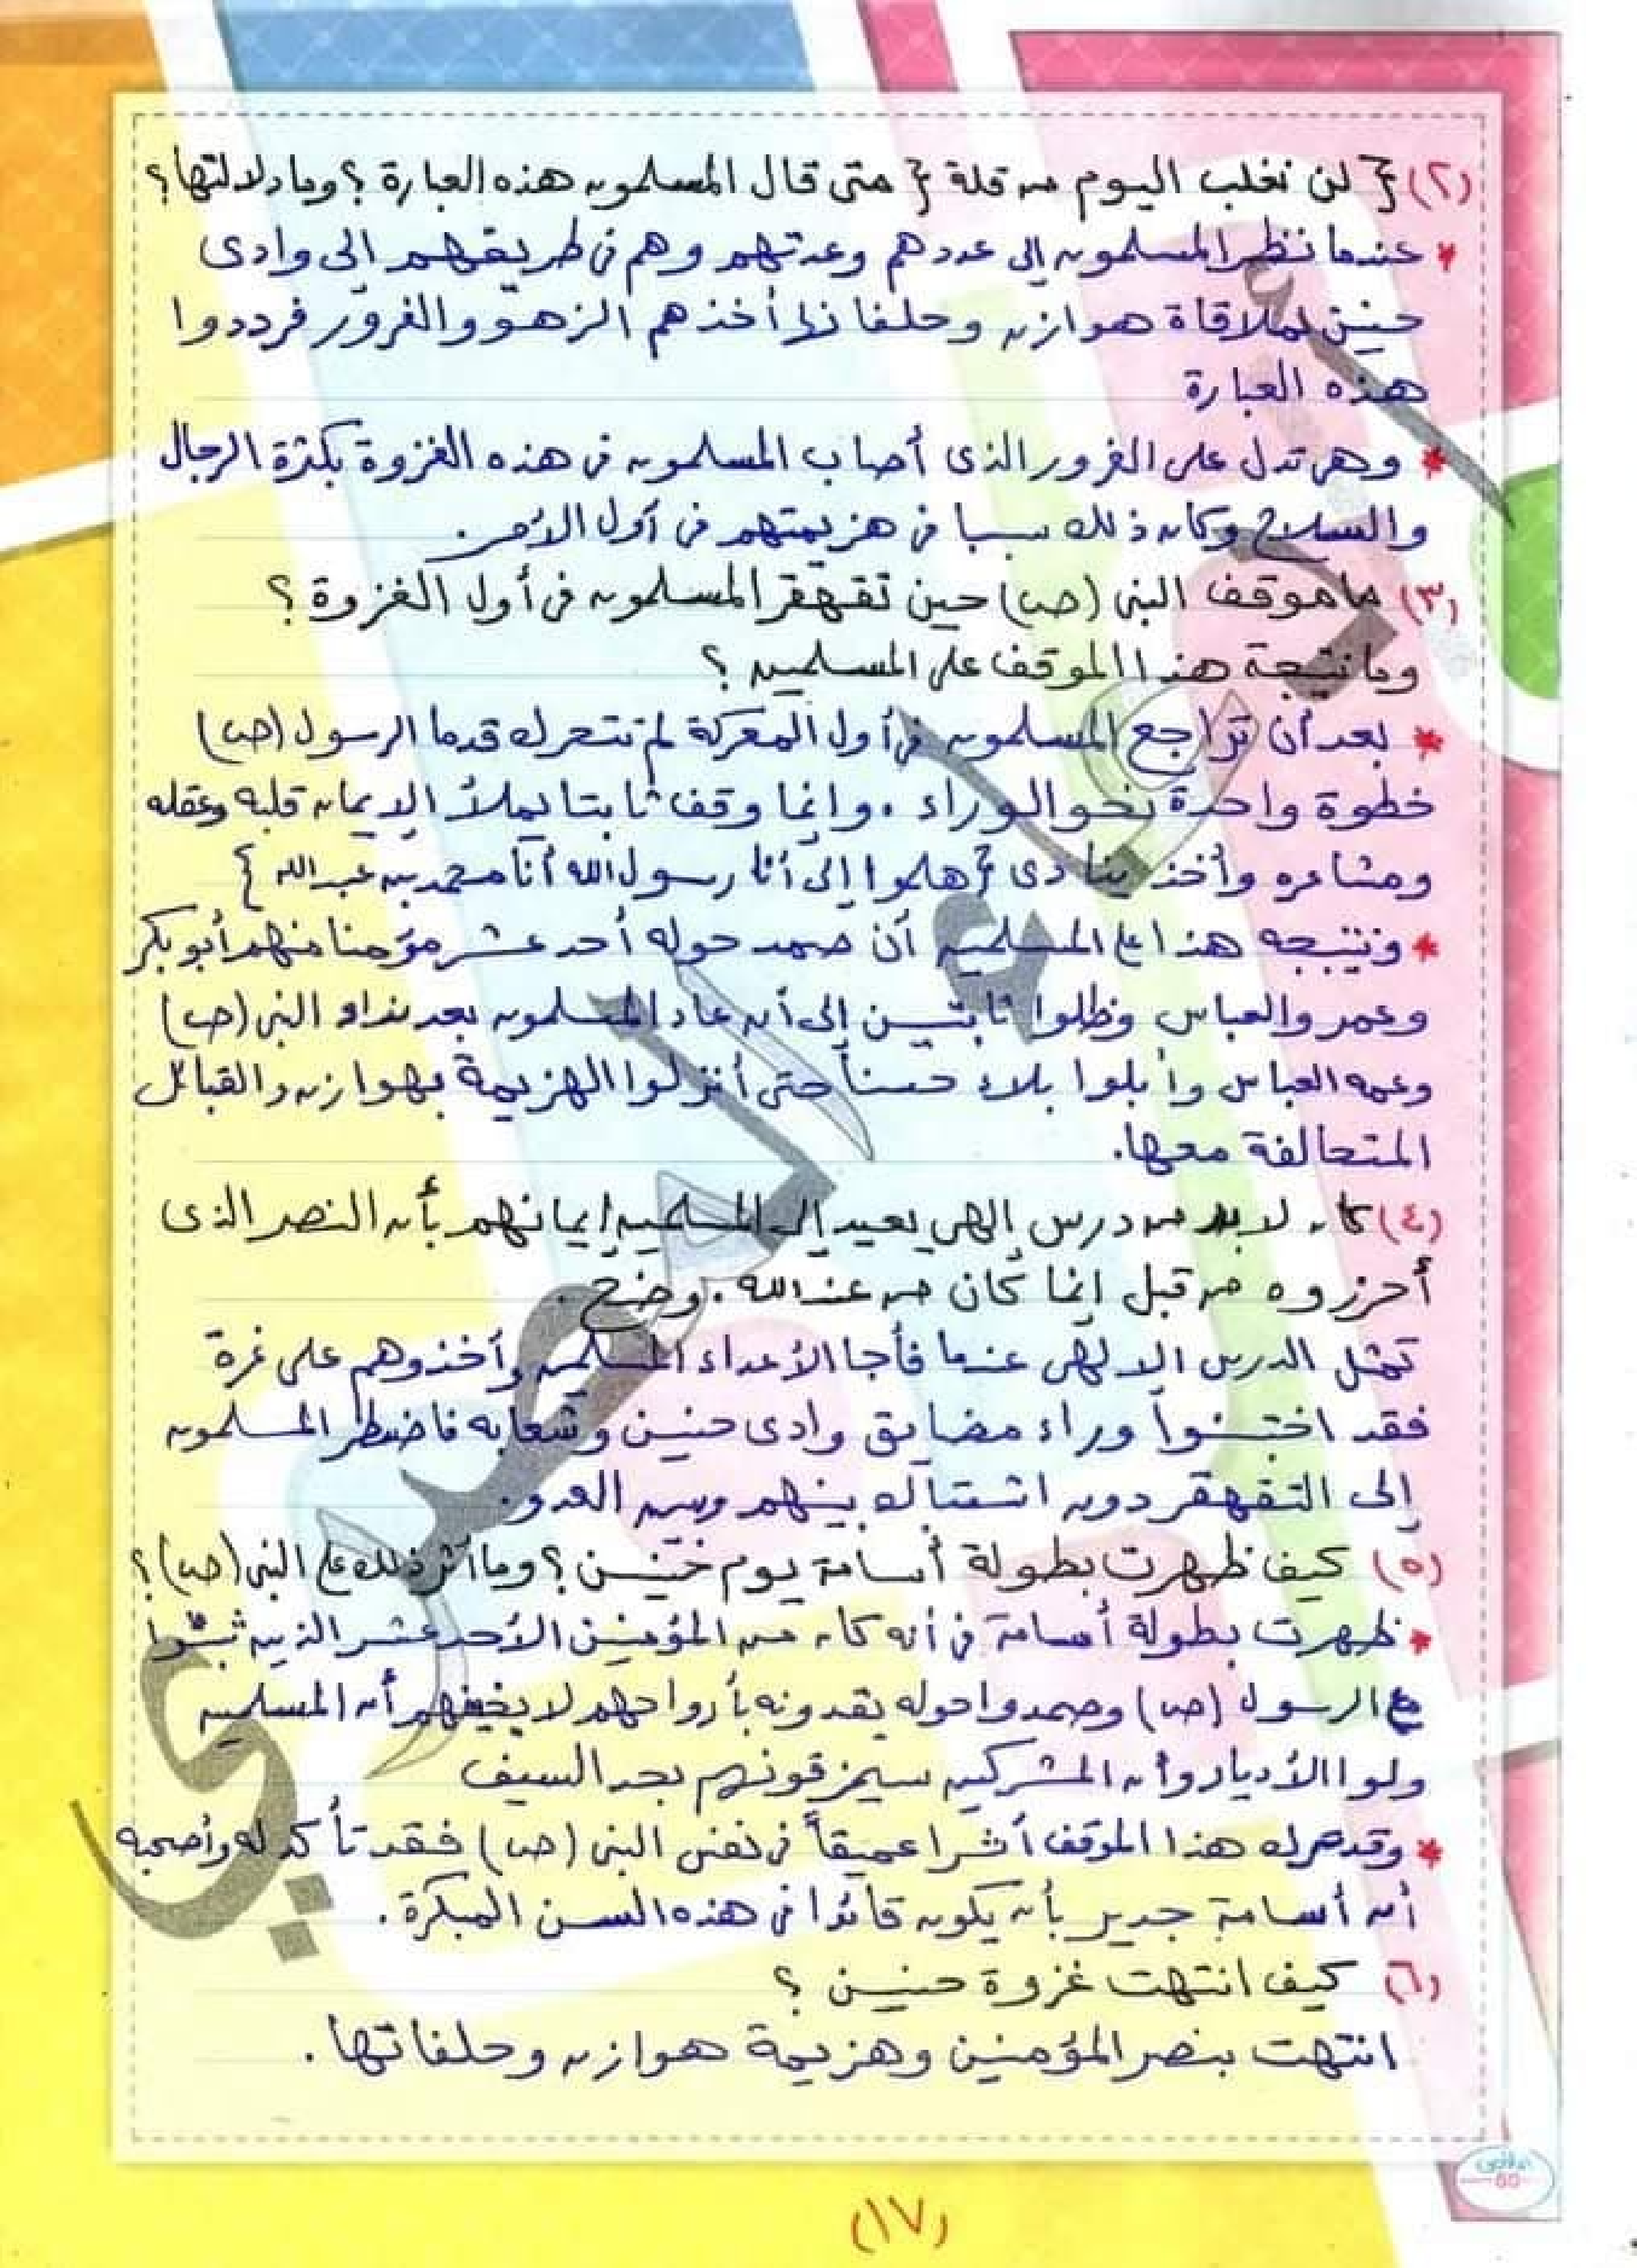 (٢) { لن نغلب اليوم من قلة } متى قال المسلمون هذه العبارة ؟ وما دلالتها ؟
* عندما نظر المسلمون إلى عددهم وعدتهم وهم فى طريقهم إلى وادى
حنين لملاقاة هوازن وحلفائها أخذهم الزهو والغرور فرددوا
هذه العبارة
* وهى تدل على الغرور الذى أصاب المسلمون فى هذه الغزوة بكثرة الرجال
والسلاح وكان ذلك سببا فى هزيمتهم فى أول الأمر.
(٣) ما موقف النبى (ص) حين تقهقر المسلمون فى أول الغزوة ؟
وما نتيجة هذا الموقف على المسلمين ؟
* بعد أن تراجع المسلمون فى أول المعركة لم تتحرك قدما الرسول (ص)
خطوة واحدة نحو الوراء . وإنما وقف ثابتا يملأ الإيمان قلبه وعقله
ومشاعره وأخذ ينادى { هلموا إلى أنا رسول الله أنا محمد بن عبد الله }
* ونتيجه هذا على المسلمين أن صمد حوله أحد عشر مؤمنا منهم أبو بكر
وعمر والعباس وظلوا ثابتين إلى أن عاد المسلمون بعد نداء النبى (ص)
وعمه العباس وأبلوا بلاء حسناً حتى أنزلوا الهزيمة بهوازن والقبائل
المتحالفة معها.
(٤) كان لابد من درس إلهى يعيد إلى المسلمين إيمانهم بأن النصر الذى
أحرزوه من قبل إنما كان من عند الله . وضح .
تمثل الدرس الإلهى عندما فأجا الأعداء المسلمين وأخذوهم على غرة
فقد اختبئوا وراء مضايق وادى حنين وشعابه فاضطر المسلمون
إلى التقهقر دون اشتباك بينهم وبين العدو.
(٥) كيف ظهرت بطولة أسامة يوم حنين ؟ وما أثر ذلك على النبى (ص) ؟
* ظهرت بطولة أسامة فى أنه كان من المؤمنين الأحد عشر الذين ثبتوا
مع الرسول (ص) وصمدوا حوله يفدونه بأرواحهم لا يخيفهم أن المسلمين
ولوا الأدبار وأن المشركين سيمزقونهم بحد السيف
* وقد ترك هذا الموقف أثرا عميقاً فى نفس النبى (ص) فقد تأكد له وأصحبه
أن أسامة جدير بأن يكون قائدا فى هذه السن المبكرة .
(٦) كيف انتهت غزوة حنين ؟
انتهت بنصر المؤمنين وهزيمة هوازن وحلفائها .
(١٧)